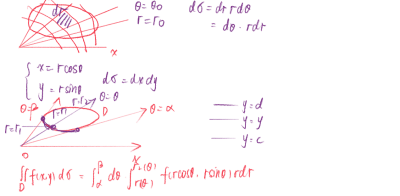 dσ
θ = θ₀
r = r₀
dσ = dr rdθ
= dθ · rdr
x
{ x = rcosθ
y = rsinθ
dσ = dxdy
θ = β
r = r₂
θ = θ
r = r₁
D
θ = α
r = r₁
O
x
y = d
y = y
y = c
∬_D f(x,y) dσ = ∫_α^β dθ ∫_{r₁(θ)}^{r₂(θ)} f(rcosθ, rsinθ) rdr